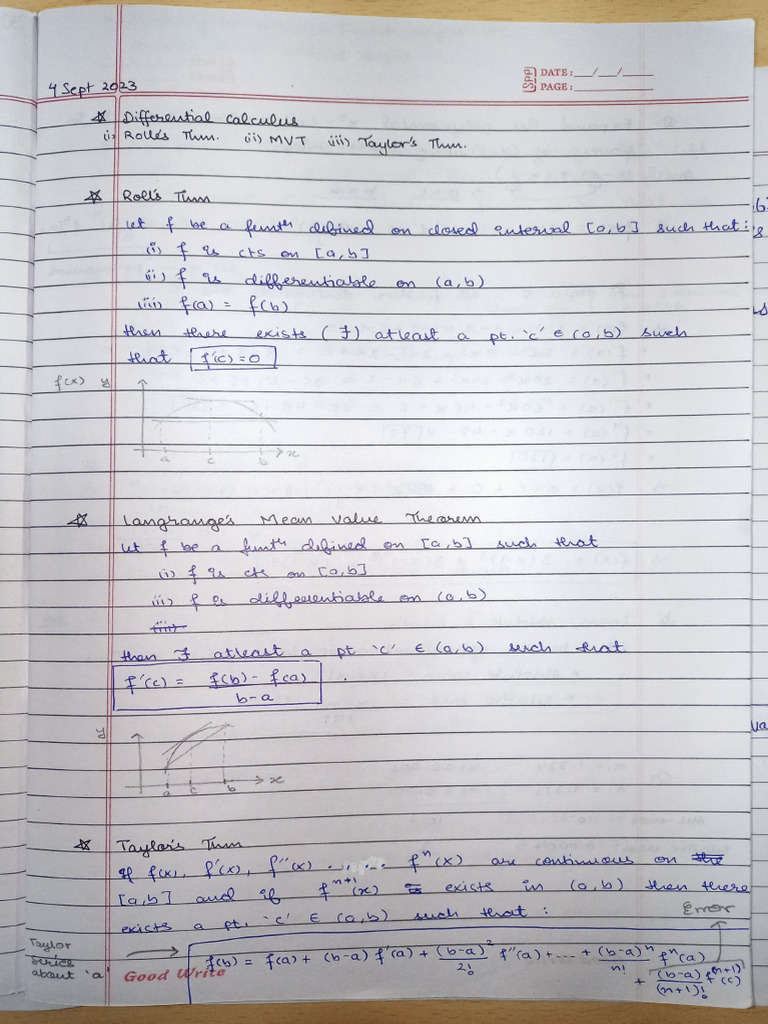 4 Sept 2023
SPP DATE: __/__/__
PAGE: ______
☆ Differential Calculus
(i) Rolle's Thm. (ii) MVT (iii) Taylor's Thm.
☆ Roll's Thm
Let f be a funtⁿ defined on closed interval [a,b] such that:
(i) f is cts on [a,b]
(ii) f is differentiable on (a,b)
(iii) f(a) = f(b)
then there exists (∃) atleast a pt. 'c' ∈ (a,b) such
that f'(c) = 0
f(x) y
a c b x
☆ Langrange's Mean Value Theorem
Let f be a funtⁿ defined on [a,b] such that
(i) f is cts on [a,b]
(ii) f is differentiable on (a,b)
(iii)
then ∃ atleast a pt 'c' ∈ (a,b) such that
f'(c) = f(b) - f(a) / b-a
y
a c b x
☆ Taylor's Thm
If f(x), f'(x), f''(x) ...... fⁿ(x) are continuous on the
[a,b] and if fⁿ⁺¹(x) exists in (a,b) then there
exists a pt. 'c' ∈ (a,b) such that :
Error
Taylor series about 'a'
f(b) = f(a) + (b-a) f'(a) + (b-a)²/2! f''(a) + ... + (b-a)ⁿ/n! fⁿ(a)
+ (b-a)/(n+1)! f⁽ⁿ⁺¹⁾(c)
Good Write